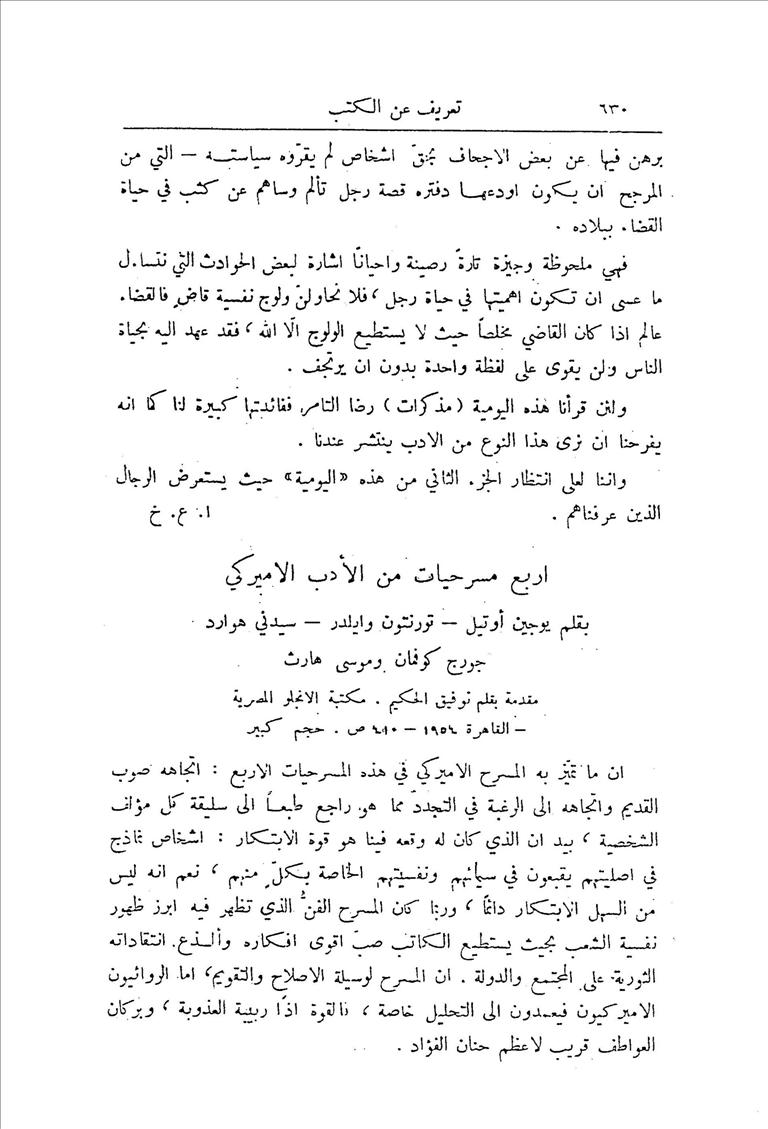 ٦٣٠ تعريف عن الكتب
يرهن فيها عن بعض الاجحاف بحقّ اشخاص لم يقرّوه سياسته — التي من
المرجح ان يكون اودعها دفتره قصة رجل تألم وساهم عن كثب في حياة
القضاء ببلاده .
فهي ملحوظة وجيزة تارةً رصينة واحيانًا اشارة لبعض الحوادث التي نتساءل
ما عسى ان تكون اهميتها في حياة رجل ، فلا نحاولنّ ولوج نفسية قاضٍ فالقضاء
عالم اذا كان القاضي مخلصاً حيث لا يستطيع الولوج الّا الله ، فقد عهد اليه بحياة
الناس ولن يقوى على لفظة واحدة بدون ان يرتجف .
ولئن قرأنا هذه اليومية (مذكرات) رضا التامر، ففائدتها كبيرة لنا كما انه
يفرحنا ان نرى هذا النوع من الادب ينتشر عندنا .
واننا لعلى انتظار الجزء الثاني من هذه «اليومية» حيث يستعرض الرجال
الذين عرفناهم .
ا. ع. خ
اربع مسرحيات من الأدب الاميركي
بقلم يوجين أوتيل — تورنتون وايلدر — سيدني هوارد
جورج كوفمان وموسى هارث
مقدمة بقلم توفيق الحكيم . مكتبة الانجلو المصرية
– القاهرة ١٩٥٤ – ٤٨٠ ص . حجم كبير
ان ما تميّز به المسرح الاميركي في هذه المسرحيات الاربع : اتجاهه صوب
القديم واتجاهه الى الرغبة في التجدد مما هو راجع طبعاً الى سليقة كل مؤلف
الشخصية ، بيد ان الذي كان له وقعه فينا هو قوة الابتكار : اشخاص نماذج
في اصليتهم يقبعون في سيمائهم ونفسيتهم الخاصة بكلّ منهم ، نعم انه ليس
من السهل الابتكار دائمًا ، وربما كان المسرح الفنُّ الذي تظهر فيه ابرز ظهور
نفسية الشعب بحيث يستطيع الكاتب صبّ اقوى افكاره وألذع انتقاداته
الثورية على المجتمع والدولة . ان المسرح لوسيلة الاصلاح والتقويم، اما الروائيون
الاميركيون فيعمدون الى التحليل خاصة ، فالقوة اذًا ربيبة العذوبة ، وبركان
العواطف قريب لاعظم حنان الفؤاد .